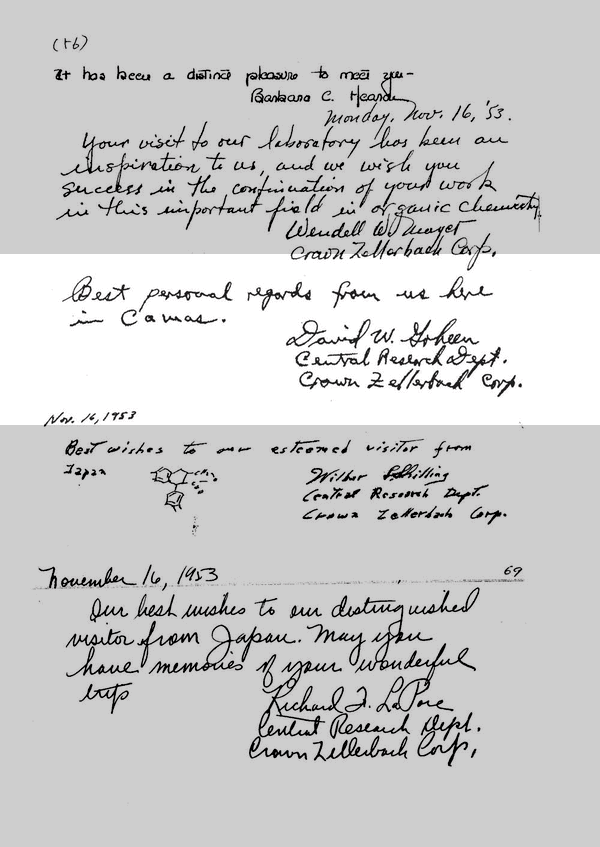 (+6)
It has been a distinct pleasure to meet you—
Barbara C.
Monday, Nov. 16, '53.
Your visit to our laboratory has been an
inspiration to us, and we wish you
success in the continuation of your work
in this important field in organic chemistry.
Wendell W.
Crown Zellerbach Corp.
Best personal regards from us here
in Camas.
David W. Goheen
Central Research Dept.
Crown Zellerbach Corp.
Nov. 16, 1953
Best wishes to our esteemed visitor from
Japan
Wilbur Shilling
Central Research Dept.
Crown Zellerbach Corp.
November 16, 1953
69
Our best wishes to our distinguished
visitor from Japan. May you
have memories of your wonderful
trip
Richard F. LaPore
Central Research Dept.
Crown Zellerbach Corp.